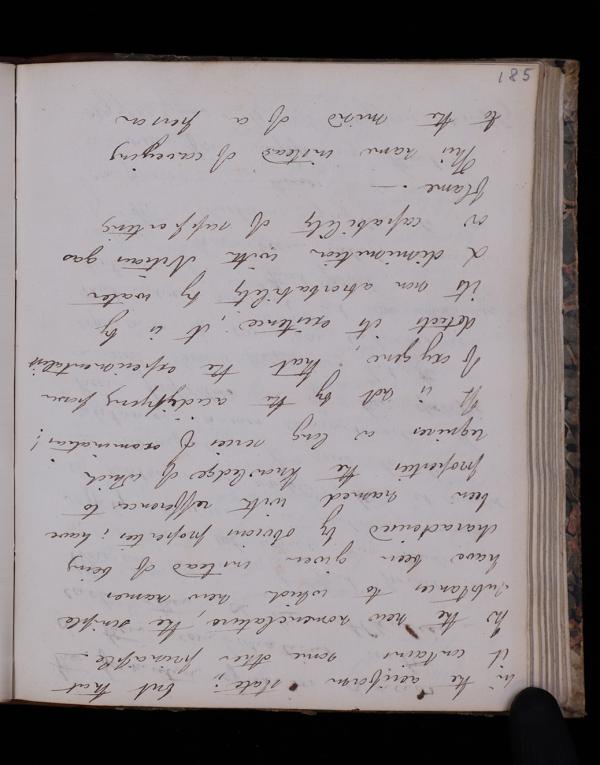 185
in the aeriform state; but that
it contains some other principle.
In the new nomenclature, the simple
substances to which new names
have been given instead of being
characterised by obvious properties; have
been named with refference to
properties the knowledge of which
requires a long series of examination;
It is not by the acidifying power
of oxygene, that the experimentalist
detects its existence; it is by
its non absorbability by water
& diminution with Nitrous gas
or capability of supporting
flame. —
This name instead of conveying
to the mind of a person